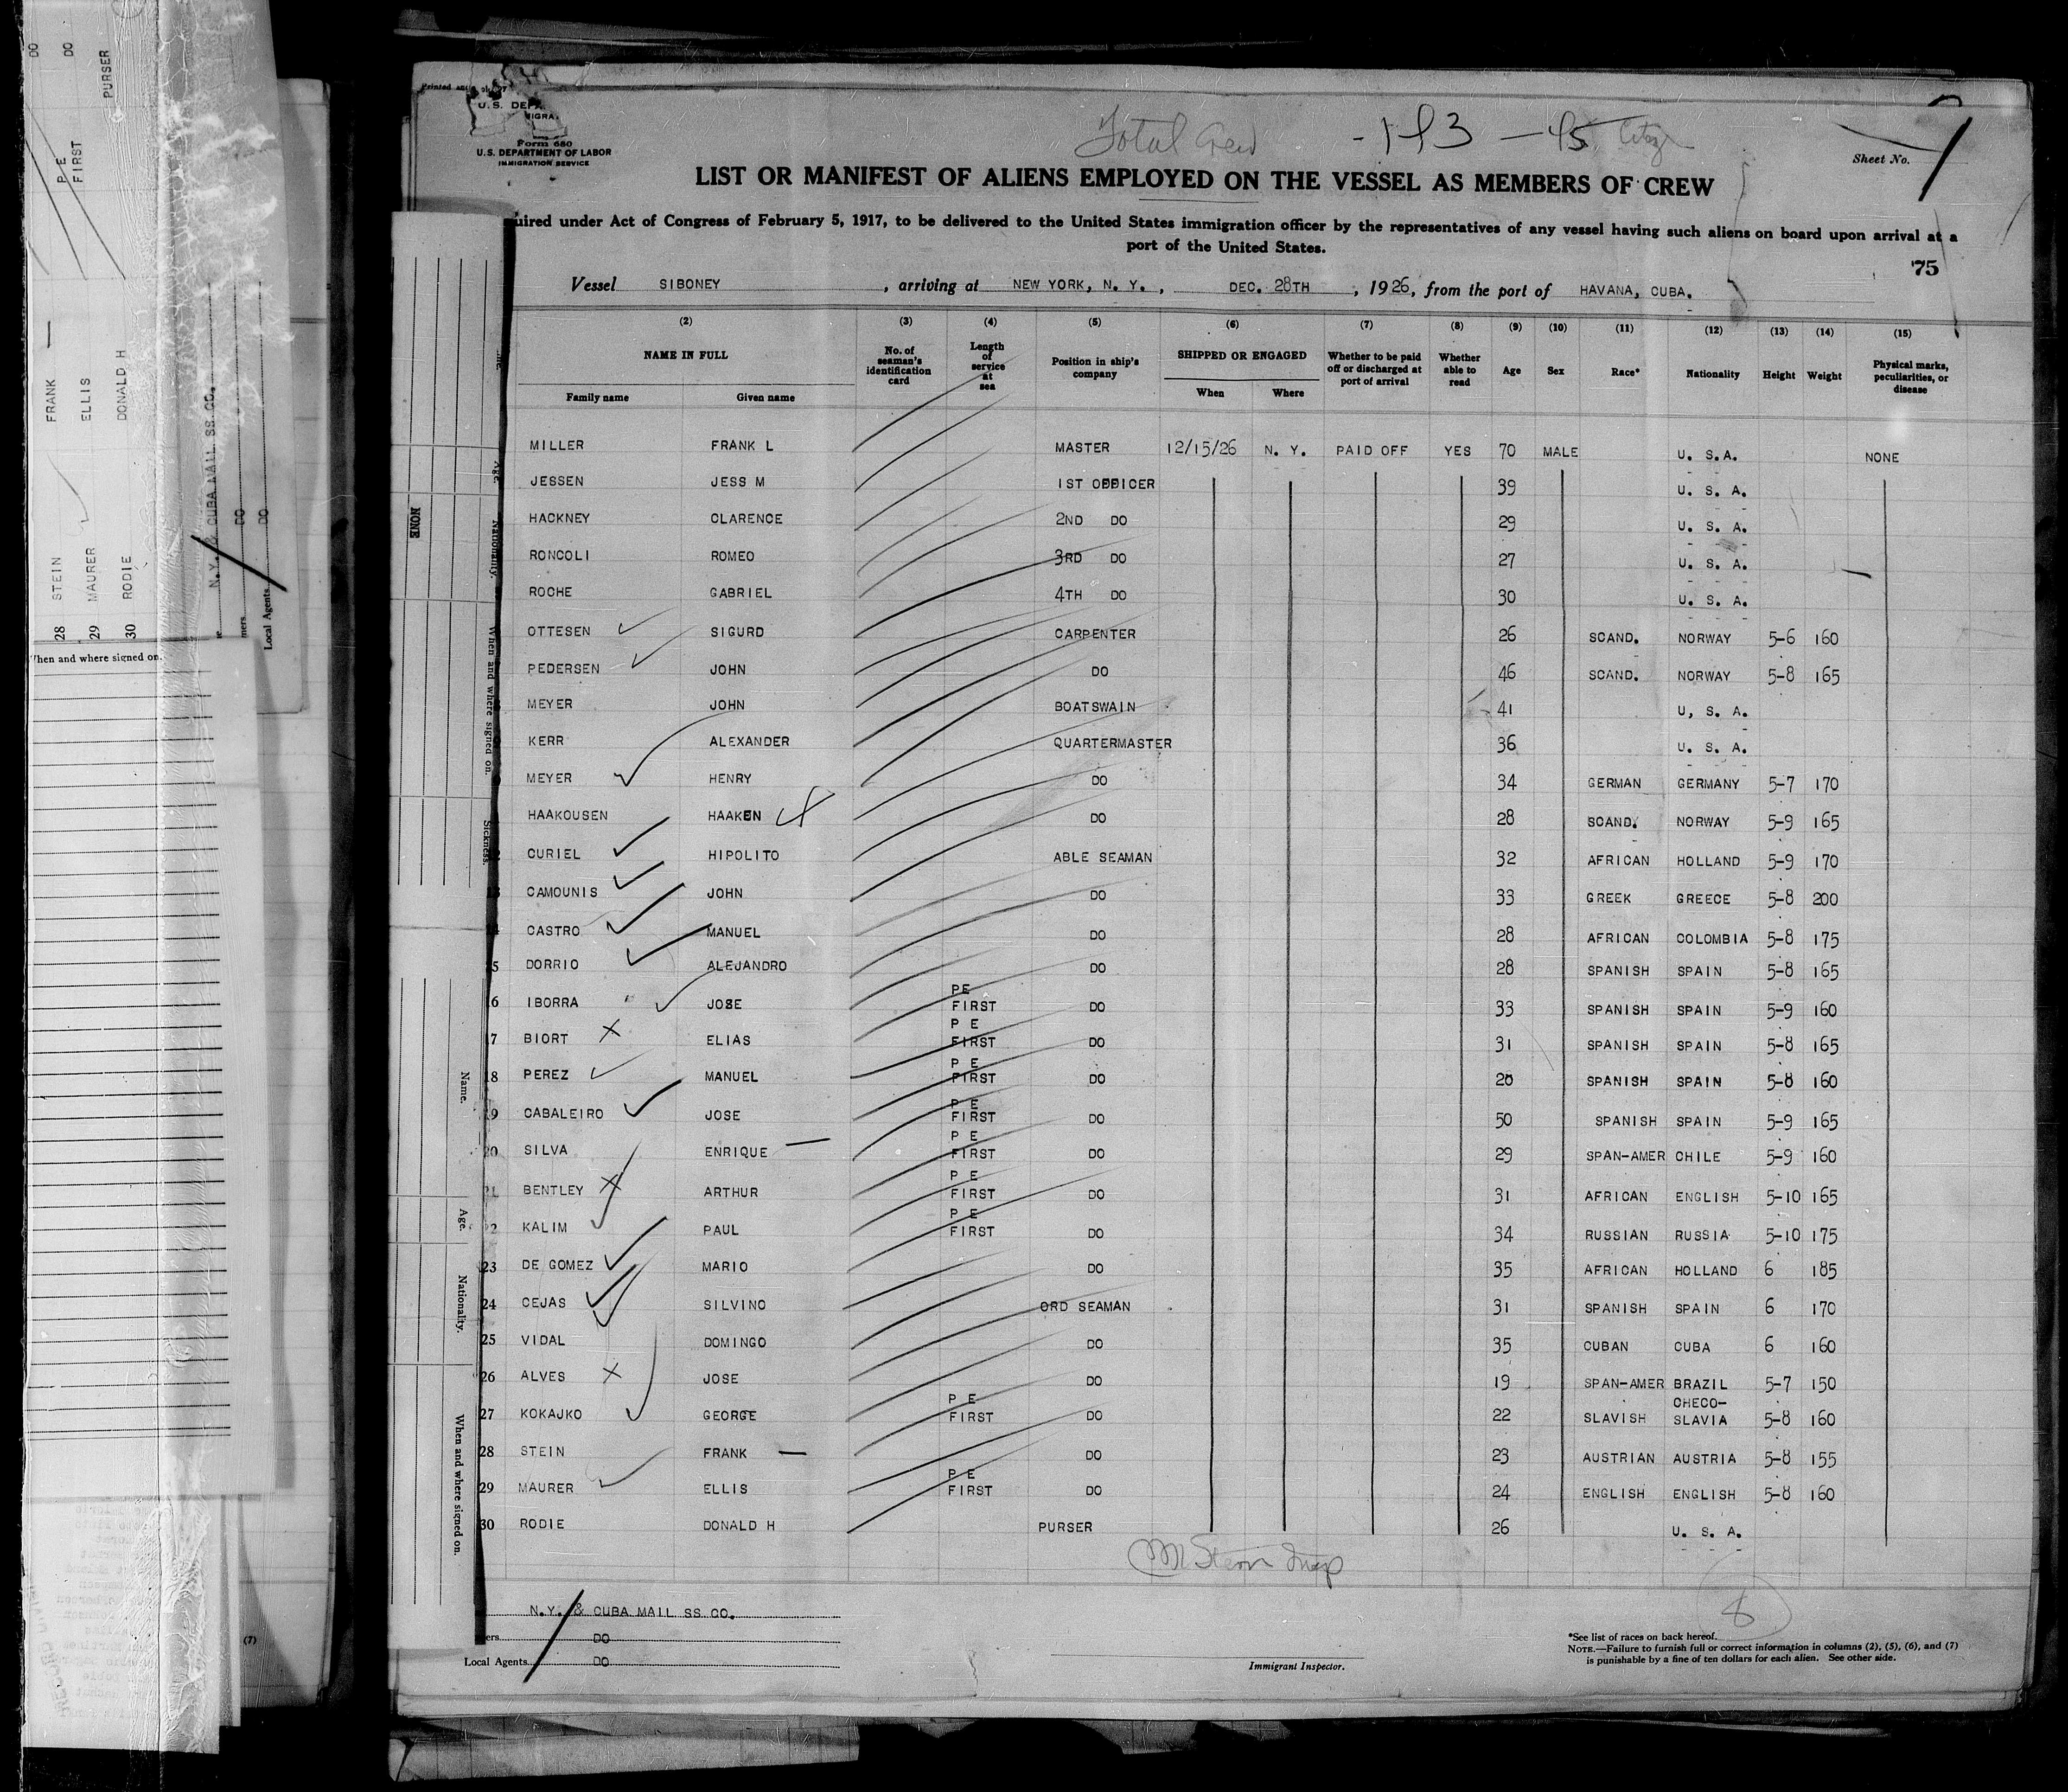 DO
DO
PURSER
P E
FIRST
FRANK —
ELLIS
DONALD H
28 STEIN
29 MAURER
30 RODIE
N.Y. & CUBA MAIL SS.CO.
DO
DO
Local Agents
When and where signed on.
(7)
U.S. DEPA
Form 680
U.S. DEPARTMENT OF LABOR
IMMIGRATION SERVICE
Total Crew
Sheet No. 1
LIST OR MANIFEST OF ALIENS EMPLOYED ON THE VESSEL AS MEMBERS OF CREW
uired under Act of Congress of February 5, 1917, to be delivered to the United States immigration officer by the representatives of any vessel having such aliens on board upon arrival at a
port of the United States.
75
Vessel SIBONEY, arriving at NEW YORK, N. Y., DEC. 28TH, 1926, from the port of HAVANA, CUBA.
(2) (3) (4) (5) (6) (7) (8) (9) (10) (11) (12) (13) (14) (15)
NAME IN FULL
Family name Given name
No. of seaman's identification card
Length of service at sea
Position in ship's company
SHIPPED OR ENGAGED
When Where
Whether to be paid off or discharged at port of arrival
Whether able to read
Age
Sex
Race*
Nationality
Height
Weight
Physical marks, peculiarities, or disease
MILLER FRANK L MASTER 12/15/26 N. Y. PAID OFF YES 70 MALE U. S.A. NONE
JESSEN JESS M 1ST OFFICER 39 U. S. A.
HACKNEY CLARENCE 2ND DO 29 U. S. A.
RONCOLI ROMEO 3RD DO 27 U. S. A.
ROCHE GABRIEL 4TH DO 30 U. S. A.
OTTESEN SIGURD CARPENTER 26 SCAND. NORWAY 5-6 160
PEDERSEN JOHN DO 46 SCAND. NORWAY 5-8 165
MEYER JOHN BOATSWAIN 41 U, S. A.
KERR ALEXANDER QUARTERMASTER 36 U. S. A.
MEYER HENRY DO 34 GERMAN GERMANY 5-7 170
HAAKOUSEN HAAKEN DO 28 SCAND. NORWAY 5-9 165
CURIEL HIPOLITO ABLE SEAMAN 32 AFRICAN HOLLAND 5-9 170
CAMOUNIS JOHN DO 33 GREEK GREECE 5-8 200
CASTRO MANUEL DO 28 AFRICAN COLOMBIA 5-8 175
5 DORRIO ALEJANDRO DO 28 SPANISH SPAIN 5-8 165
6 IBORRA JOSE PE FIRST DO 33 SPANISH SPAIN 5-9 160
7 BIORT ELIAS P E FIRST DO 31 SPANISH SPAIN 5-8 165
18 PEREZ MANUEL P E FIRST DO 20 SPANISH SPAIN 5-8 160
9 CABALEIRO JOSE P E FIRST DO 50 SPANISH SPAIN 5-9 165
20 SILVA ENRIQUE — P E FIRST DO 29 SPAN-AMER CHILE 5-9 160
21 BENTLEY ARTHUR P E FIRST DO 31 AFRICAN ENGLISH 5-10 165
2 KALIM PAUL P E FIRST DO 34 RUSSIAN RUSSIA 5-10 175
23 DE GOMEZ MARIO DO 35 AFRICAN HOLLAND 6 185
24 CEJAS SILVINO ORD SEAMAN 31 SPANISH SPAIN 6 170
25 VIDAL DOMINGO DO 35 CUBAN CUBA 6 160
26 ALVES JOSE DO 19 SPAN-AMER BRAZIL 5-7 150
27 KOKAJKO GEORGE P E FIRST DO 22 SLAVISH CHECO-SLAVIA 5-8 160
28 STEIN FRANK — DO 23 AUSTRIAN AUSTRIA 5-8 155
29 MAURER ELLIS P E FIRST DO 24 ENGLISH ENGLISH 5-8 160
30 RODIE DONALD H PURSER 26 U. S. A.
N.Y. & CUBA MAIL SS.CO.
DO
Local Agents DO
Immigrant Inspector.
8
*See list of races on back hereof.
NOTE.—Failure to furnish full or correct information in columns (2), (5), (6), and (7)
is punishable by a fine of ten dollars for each alien. See other side.
NONE
Age.
Nationality.
When and where signed on.
Sickness.
Name.
Age.
Nationality.
When and where signed on.